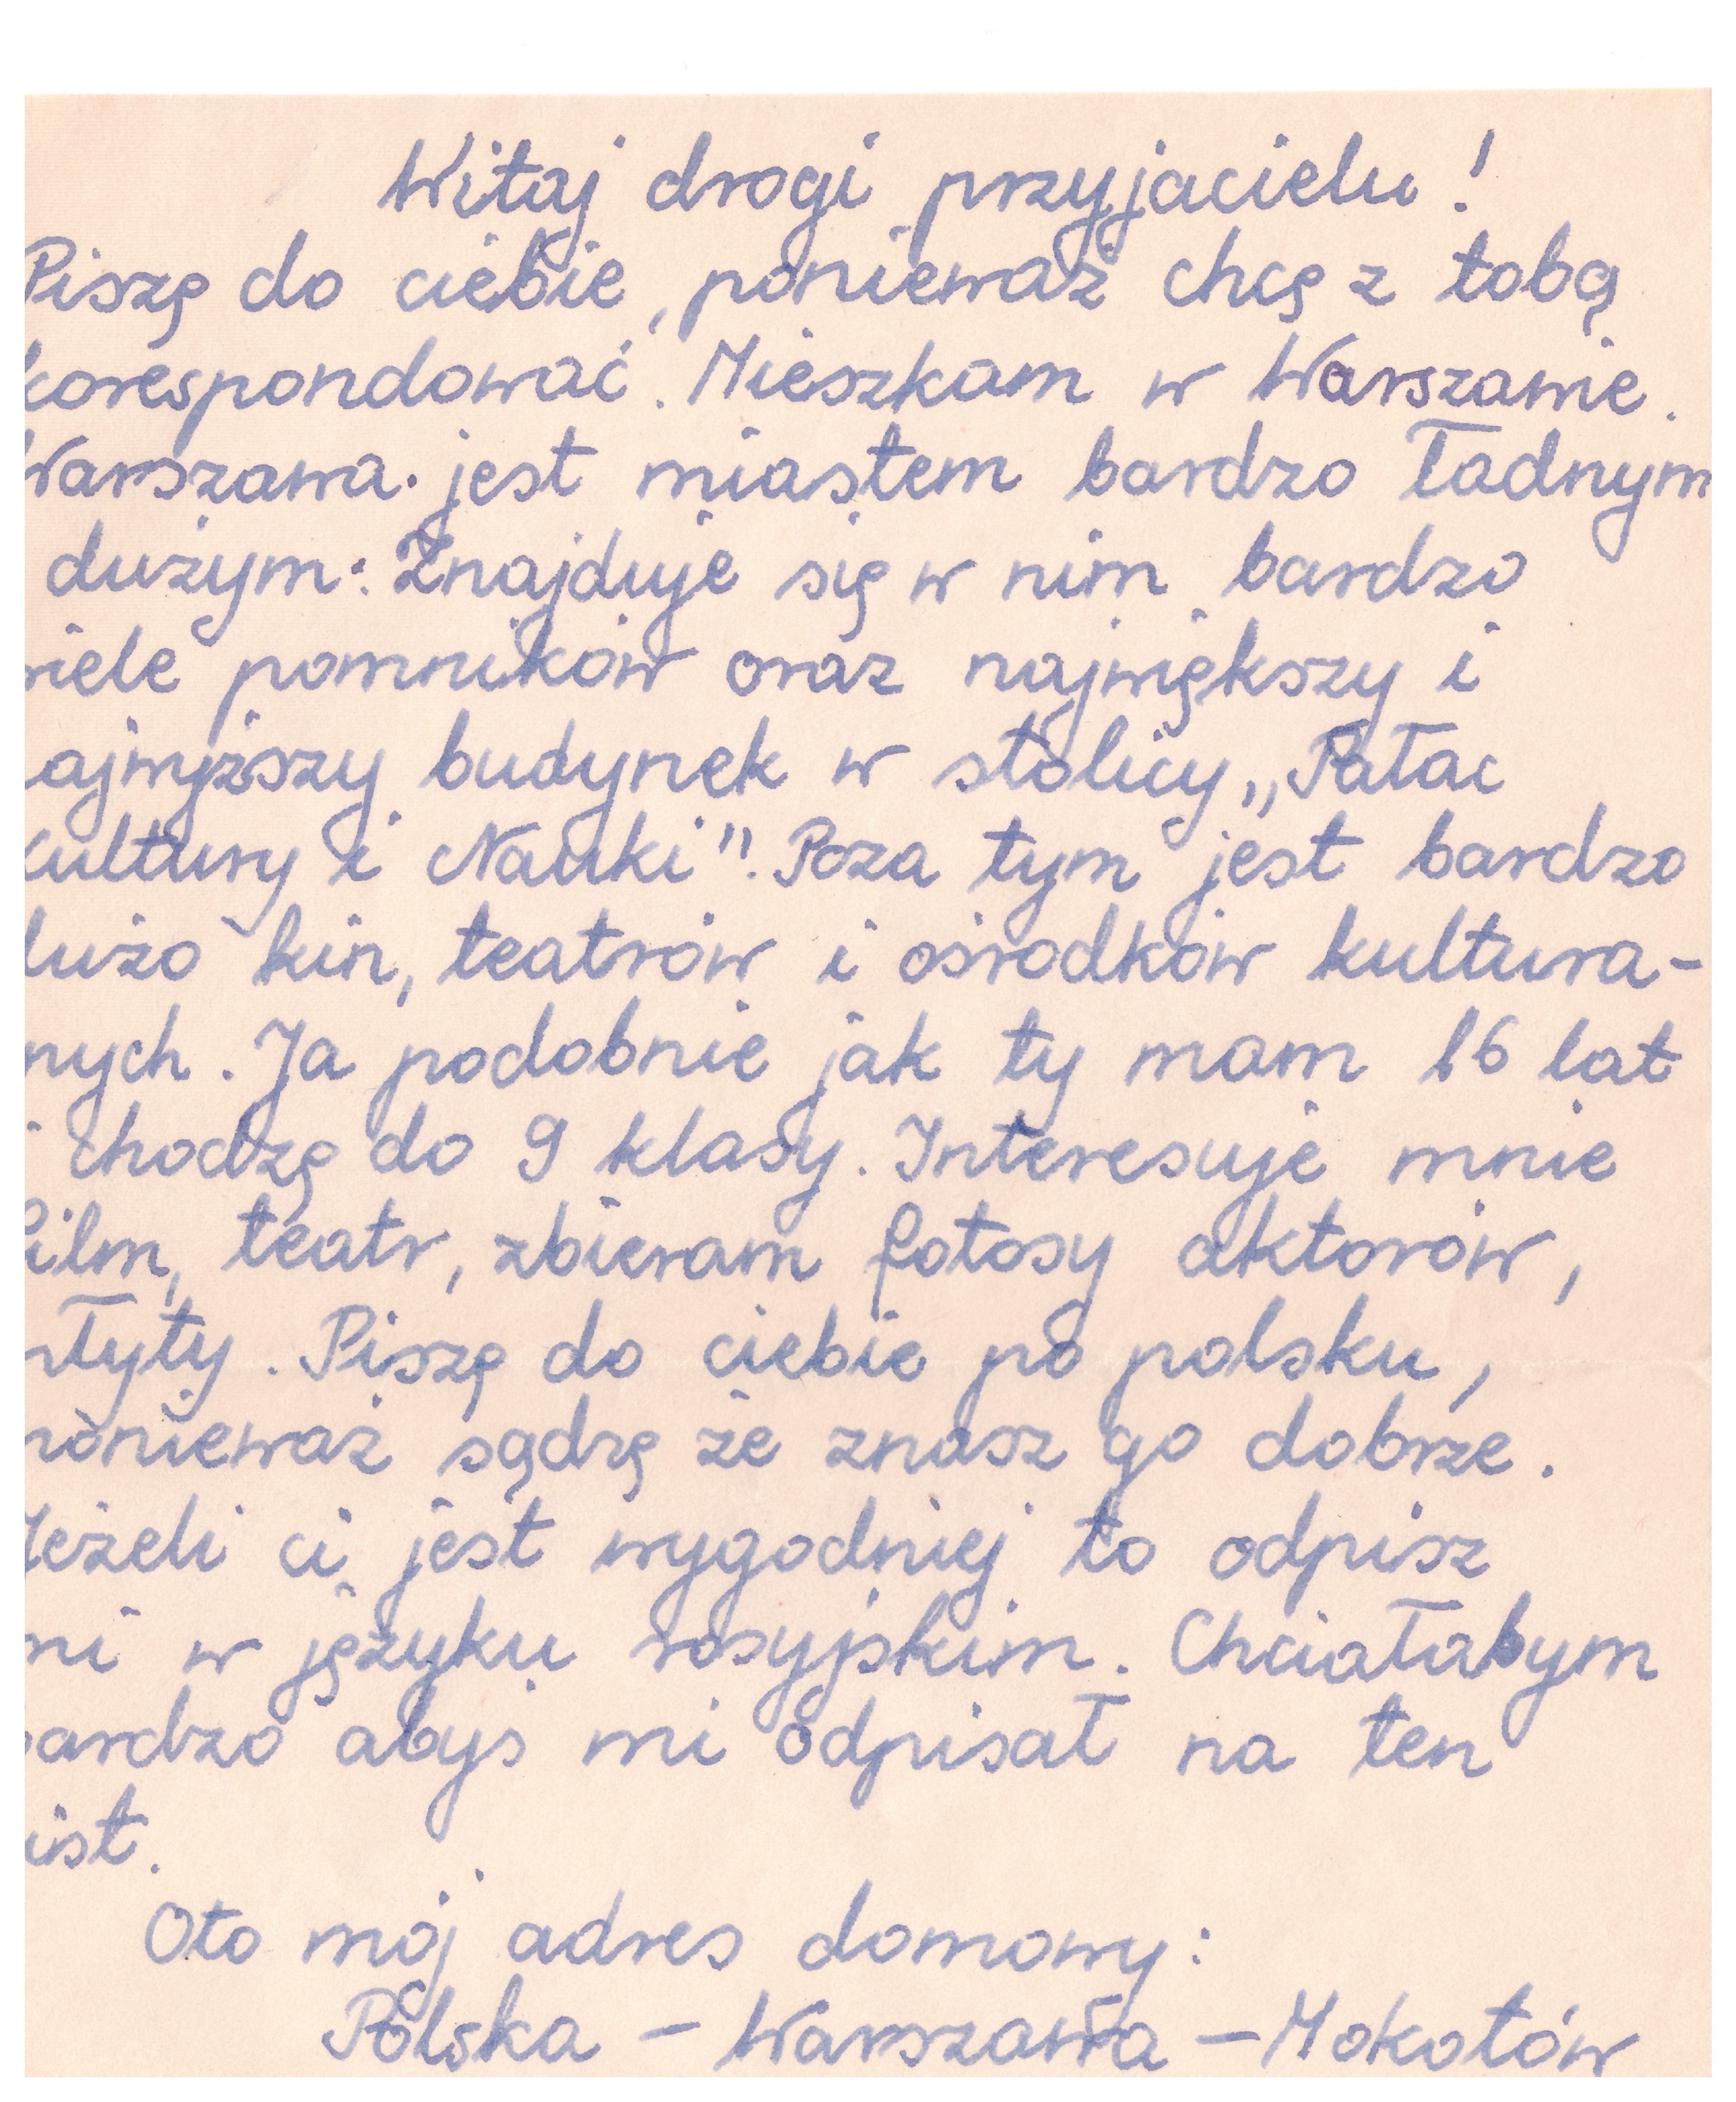 Witaj drogi przyjacielu!
Piszę do ciebie, ponieważ chcę z tobą
korespondować. Mieszkam w Warszawie.
Warszawa jest miastem bardzo ładnym
dużym. Znajduje się w nim bardzo
wiele pomników oraz największy i
najwyższy budynek w stolicy „Pałac
Kultury i Nauki". Poza tym jest bardzo
dużo kin, teatrów i ośrodków kultura-
nych. Ja podobnie jak ty mam 16 lat
i chodzę do 9 klasy. Interesuje mnie
film, teatr, zbieram fotosy aktorów,
płyty. Piszę do ciebie po polsku,
ponieważ sądzę że znasz go dobrze.
Jeżeli ci jest wygodniej to odpisz
mi w języku rosyjskim. Chciałabym
bardzo abyś mi odpisał na ten
list.
Oto mój adres domowy:
Polska - Warszawa - Mokotów